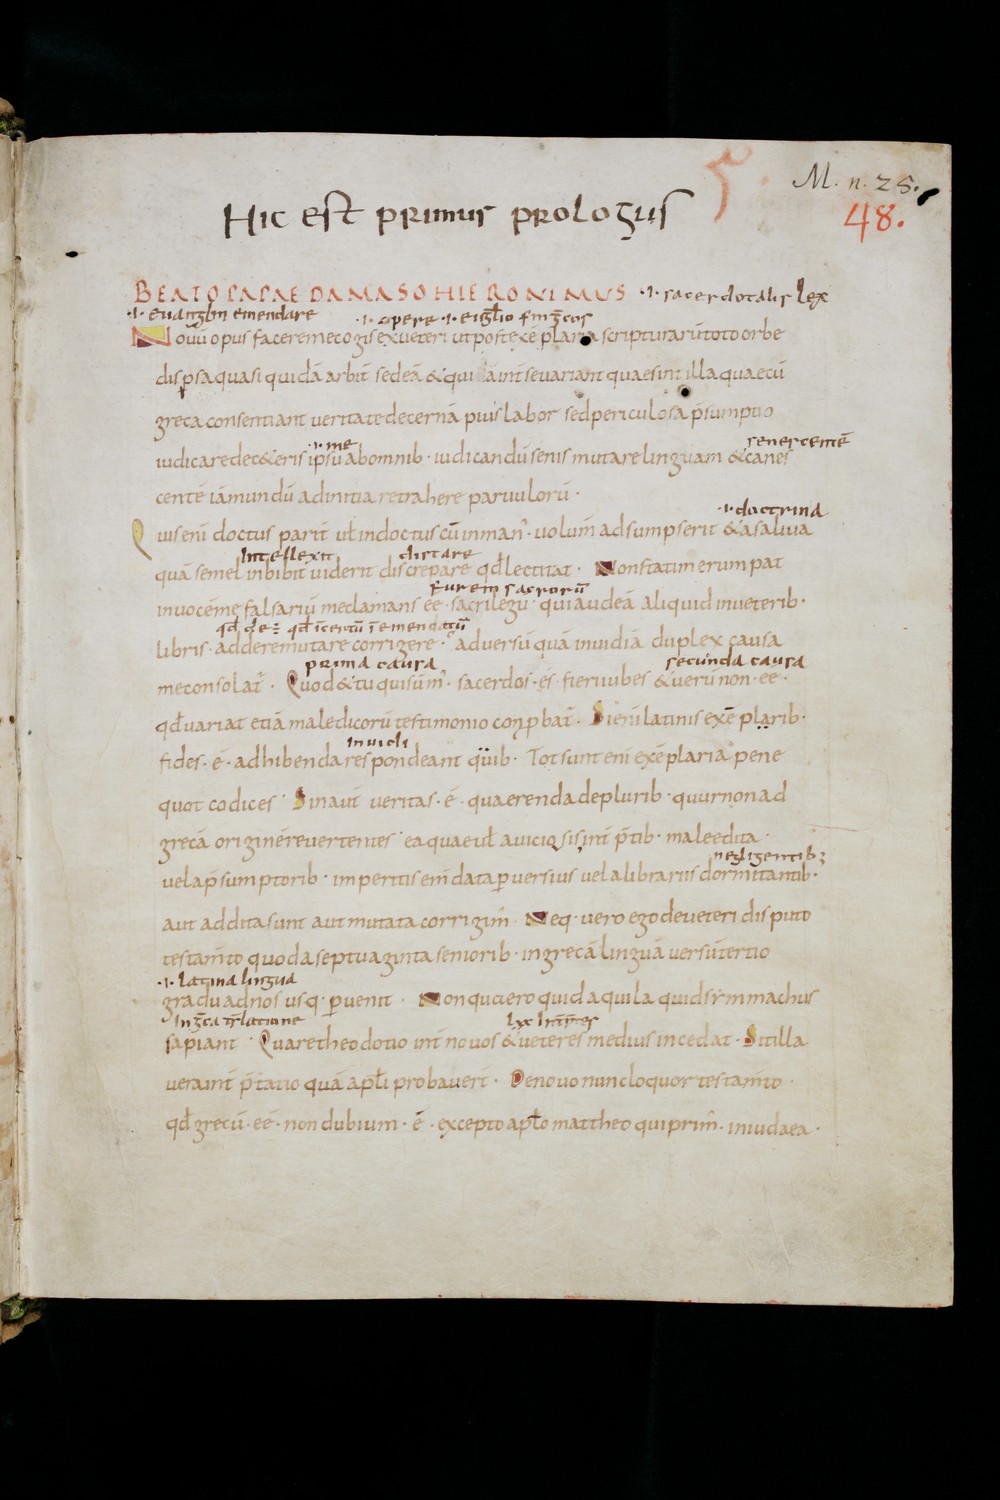 M. n. 25.
48.
Hic est primus prologus
BEATO PAPAE DAMASO HIERONIMUS ·i· sacerdotalis lex
·i· euanglm emendare ·i· opere ·i· eiglio
Nouũ opus facere me cogis ex ueteri ut post exẽplaria scripturarũ toto orbe
dispsa quasi quidã arbit̃ sedeã & qui int̃ se uariant quae sint illa quae cũ
greca consentiant ueritate decernã pius labor sed periculosa p̃sumptio
·i· me senescentẽ
iudicare de c&eris ipsũ ab omnib· iudicandũ senis mutare linguam & canes
centẽ iã mundũ ad initia retrahere paruulorũ·
·i· doctrina
Quis enĩ doctus parit̃ ut̃ indoctus cũ in man̾· uolum̃ adsumpserit & a saliua
Intellexit distare
quã semel inbibit uiderit discrepare qđ lectitat· Non statim erumpat
furem sacrorũ
in uocẽ me falsariũ me clamans eẽ· sacrilegũ· qui audeã aliquid in ueterib·
libris· addere mutare corrigere· aduersũ quã inuidiã duplex causa
prima causa secunda causa
me consolat̃· Quod & tu qui sum̃· sacerdos· es· fieri iubes & uerũ non· eẽ·
qđ uariat etiã maledicorũ testimonio conp̱bat̃· Si enĩ latinis exẽplarib·
inuidi
fides· ẽ· adhibenda respondeant quib· Tot sunt enĩ exẽplaria pene
quot codices· Sin aut̃ ueritas· ẽ· quaerenda de plurib· quur non ad
grecã originẽ reuertentes ea quae ut̃ a uiciosis int̃p̃tib· male edita·
negligentib;
uel a p̃sumptorib· imperitis emdata p̱uersius uel a librariis dormitantib·
aut addita sunt aut mutata corrigim̃· Neq· uero ego de ueteri disputo
testam̃to quod a septuaginta seniorib· in grecã linguã uersũ tertio
·i· latina lingua
gradu ad nos usq· p̱uenit· Non quero quid aquila quid simmachus
In g̃ca trlatione lxx Int̃p̃tes
sapiant· Quare theodotio int̃ nouos & ueteres medius incedat· Sit illa
uera int̃p̃tatio quã apłi probauer̃· De nouo nunc loquor testam̃to·
qđ grecũ· eẽ· non dubium· ẽ· excepto apło mattheo qui prim̃· in iudaea·